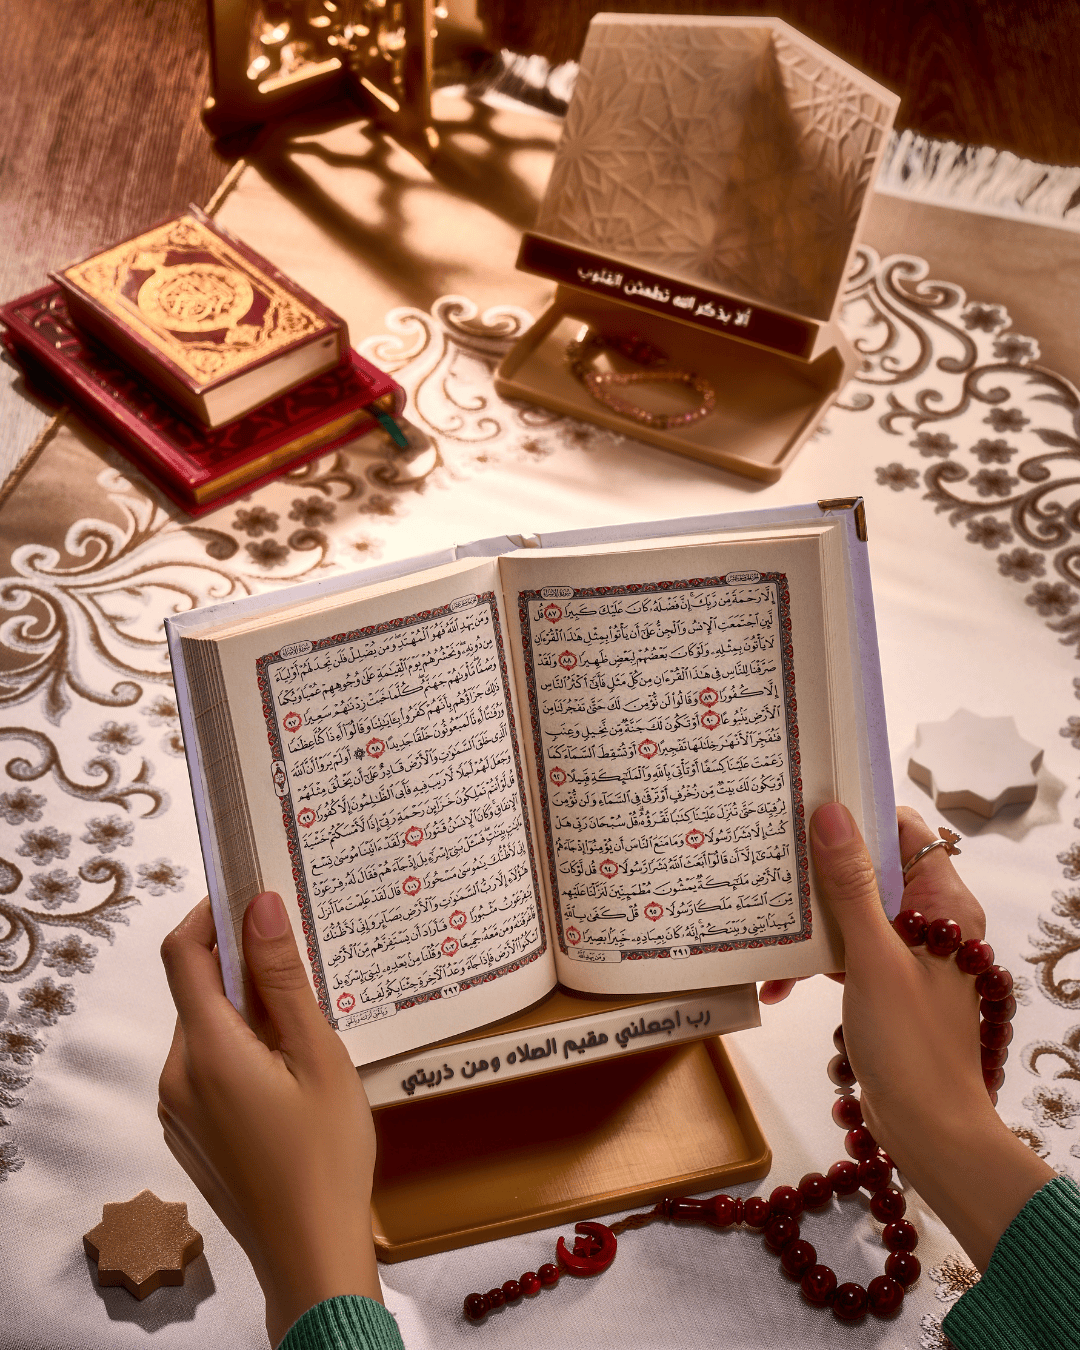 ألا بذكر الله تطمئن القلوب
سُورَةُ الإِسْرَاءِ
إِلَّا رَحْمَةً مِّن رَّبِّكَ إِنَّ فَضْلَهُۥ كَانَ عَلَيْكَ كَبِيرًا ٨٧ قُل
لَّئِنِ ٱجْتَمَعَتِ ٱلْإِنسُ وَٱلْجِنُّ عَلَىٰٓ أَن يَأْتُوا۟ بِمِثْلِ هَٰذَا ٱلْقُرْءَانِ
لَا يَأْتُونَ بِمِثْلِهِۦ وَلَوْ كَانَ بَعْضُهُمْ لِبَعْضٍ ظَهِيرًا ٨٨ وَلَقَدْ
صَرَّفْنَا لِلنَّاسِ فِى هَٰذَا ٱلْقُرْءَانِ مِن كُلِّ مَثَلٍ فَأَبَىٰٓ أَكْثَرُ ٱلنَّاسِ
إِلَّا كُفُورًا ٨٩ وَقَالُوا۟ لَن نُّؤْمِنَ لَكَ حَتَّىٰ تَفْجُرَ لَنَا مِنَ
ٱلْأَرْضِ يَنۢبُوعًا ٩٠ أَوْ تَكُونَ لَكَ جَنَّةٌ مِّن نَّخِيلٍ وَعِنَبٍ
فَتُفَجِّرَ ٱلْأَنْهَٰرَ خِلَٰلَهَا تَفْجِيرًا ٩١ أَوْ تُسْقِطَ ٱلسَّمَآءَ كَمَا
زَعَمْتَ عَلَيْنَا كِسَفًا أَوْ تَأْتِىَ بِٱللَّهِ وَٱلْمَلَٰٓئِكَةِ قَبِيلًا ٩٢
أَوْ يَكُونَ لَكَ بَيْتٌ مِّن زُخْرُفٍ أَوْ تَرْقَىٰ فِى ٱلسَّمَآءِ وَلَن نُّؤْمِنَ
لِرُقِيِّكَ حَتَّىٰ تُنَزِّلَ عَلَيْنَا كِتَٰبًا نَّقْرَؤُهُۥ قُلْ سُبْحَانَ رَبِّى هَلْ
كُنتُ إِلَّا بَشَرًا رَّسُولًا ٩٣ وَمَا مَنَعَ ٱلنَّاسَ أَن يُؤْمِنُوٓا۟ إِذْ جَآءَهُمُ
ٱلْهُدَىٰٓ إِلَّآ أَن قَالُوٓا۟ أَبَعَثَ ٱللَّهُ بَشَرًا رَّسُولًا ٩٤ قُل لَّوْ كَانَ
فِى ٱلْأَرْضِ مَلَٰٓئِكَةٌ يَمْشُونَ مُطْمَئِنِّينَ لَنَزَّلْنَا عَلَيْهِم
مِّنَ ٱلسَّمَآءِ مَلَكًا رَّسُولًا ٩٥ قُلْ كَفَىٰ بِٱللَّهِ
شَهِيدًۢا بَيْنِى وَبَيْنَكُمْ إِنَّهُۥ كَانَ بِعِبَادِهِۦ خَبِيرًۢا بَصِيرًا ٩٦
٢٩١
وَمَن يَهْدِ اللَّهُ
سُورَةُ الإِسْرَاءِ
وَمَن يَهْدِ ٱللَّهُ فَهُوَ ٱلْمُهْتَدِ وَمَن يُضْلِلْ فَلَن تَجِدَ لَهُمْ أَوْلِيَآءَ
مِن دُونِهِۦ وَنَحْشُرُهُمْ يَوْمَ ٱلْقِيَٰمَةِ عَلَىٰ وُجُوهِهِمْ عُمْيًا وَبُكْمًا
وَصُمًّا مَّأْوَىٰهُمْ جَهَنَّمُ كُلَّمَا خَبَتْ زِدْنَٰهُمْ سَعِيرًا ٩٧
ذَٰلِكَ جَزَآؤُهُم بِأَنَّهُمْ كَفَرُوا۟ بِـَٔايَٰتِنَا وَقَالُوٓا۟ أَءِذَا كُنَّا عِظَٰمًا
وَرُفَٰتًا أَءِنَّا لَمَبْعُوثُونَ خَلْقًا جَدِيدًا ٩٨ ۞ أَوَلَمْ يَرَوْا۟ أَنَّ ٱللَّهَ
ٱلَّذِى خَلَقَ ٱلسَّمَٰوَٰتِ وَٱلْأَرْضَ قَادِرٌ عَلَىٰٓ أَن يَخْلُقَ مِثْلَهُمْ
وَجَعَلَ لَهُمْ أَجَلًا لَّا رَيْبَ فِيهِ فَأَبَى ٱلظَّٰلِمُونَ إِلَّا كُفُورًا ٩٩
قُل لَّوْ أَنتُمْ تَمْلِكُونَ خَزَآئِنَ رَحْمَةِ رَبِّىٓ إِذًا لَّأَمْسَكْتُمْ خَشْيَةَ
ٱلْإِنفَاقِ وَكَانَ ٱلْإِنسَٰنُ قَتُورًا ١٠٠ وَلَقَدْ ءَاتَيْنَا مُوسَىٰ تِسْعَ
ءَايَٰتٍۭ بَيِّنَٰتٍ فَسْـَٔلْ بَنِىٓ إِسْرَٰٓءِيلَ إِذْ جَآءَهُمْ فَقَالَ لَهُۥ فِرْعَوْنُ
إِنِّى لَأَظُنُّكَ يَٰمُوسَىٰ مَسْحُورًا ١٠١ قَالَ لَقَدْ عَلِمْتَ مَآ أَنزَلَ
هَٰٓؤُلَآءِ إِلَّا رَبُّ ٱلسَّمَٰوَٰتِ وَٱلْأَرْضِ بَصَآئِرَ وَإِنِّى لَأَظُنُّكَ
يَٰفِرْعَوْنُ مَثْبُورًا ١٠٢ فَأَرَادَ أَن يَسْتَفِزَّهُم مِّنَ ٱلْأَرْضِ
فَأَغْرَقْنَٰهُ وَمَن مَّعَهُۥ جَمِيعًا ١٠٣ وَقُلْنَا مِنۢ بَعْدِهِۦ لِبَنِىٓ إِسْرَٰٓءِيلَ
ٱسْكُنُوا۟ ٱلْأَرْضَ فَإِذَا جَآءَ وَعْدُ ٱلْءَاخِرَةِ جِئْنَا بِكُمْ لَفِيفًا ١٠٤
٢٩٢
وَبِالْحَقِّ أَنزَلْنَاهُ وَبِالْحَقِّ
رب اجعلني مقيم الصلاه ومن ذريتي